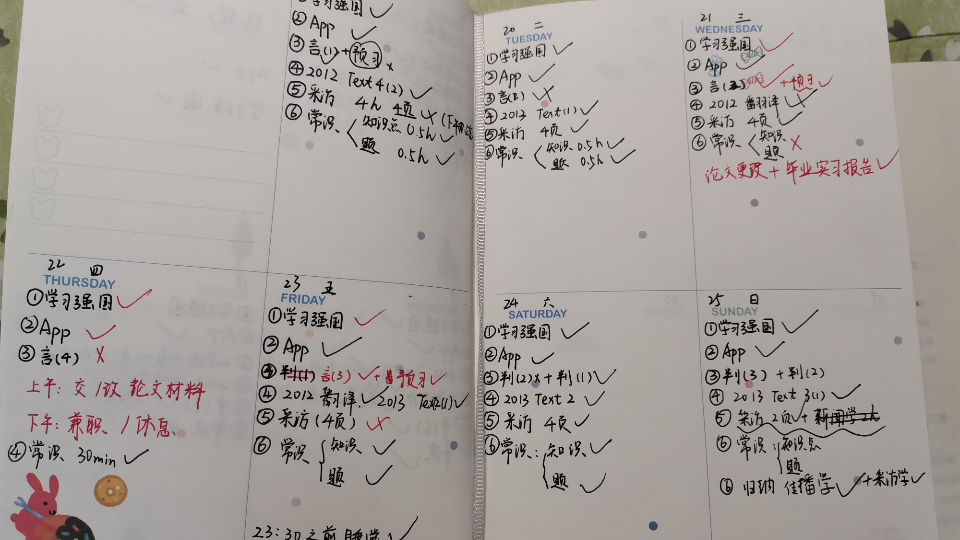 学习强国 ✓
② App ✓
③ 言(1)+预习 ×
④ 2012 Text 4(2) ✓
⑤ 采访 4h 4页 ×
⑥ 常识 知识点 0.5h ✓
题 0.5h ✓
20 二
TUESDAY
① 学习强国 ✓
② App ✓
③ 言(3) ×
④ 2013 Text(1) ✓
⑤ 采访 4页 ✓
⑥ 常识 知识 0.5h ✓
题 0.5h ✓
21 三
WEDNESDAY
① 学习强国 ✓
② App ✓
③ 言 ✓ +预习 ✓
④ 2012 翻译 ×
⑤ 采访 4页 ✓
⑥ 常识 知识
题 ×
论文更改 + 毕业实习报告 ✓
22 四
THURSDAY
① 学习强国 ✓
② App ✓
③ 言(4) ×
上午: 交/改 论文材料
下午: 兼职 / 休息
④ 常识 30min ✓
23 五
FRIDAY
① 学习强国 ✓
② App ✓
言(3) ✓ + 预习 ✓
④ 2012 翻译 ✓ 2013 Text2(1) ✓
⑤ 采访(4页) ×
⑥ 常识 知识 ✓
题 ✓
23:30之前睡觉 ✓
24 六
SATURDAY
① 学习强国 ✓
② App ✓
③ 判(2)× + 判(1) ✓
④ 2013 Text 2 ✓
⑤ 采访 4页 ✓
⑥ 常识: 知识 ✓
题 ✓
25 日
SUNDAY
① 学习强国 ✓
② App ✓
③ 判(3) + 判(2)
④ 2013 Text 3(1) ✓
⑤ 采访 2页 +
⑥ 常识: 知识点
题
⑥ 归纳 传播学 ✓ +采访学 ✓